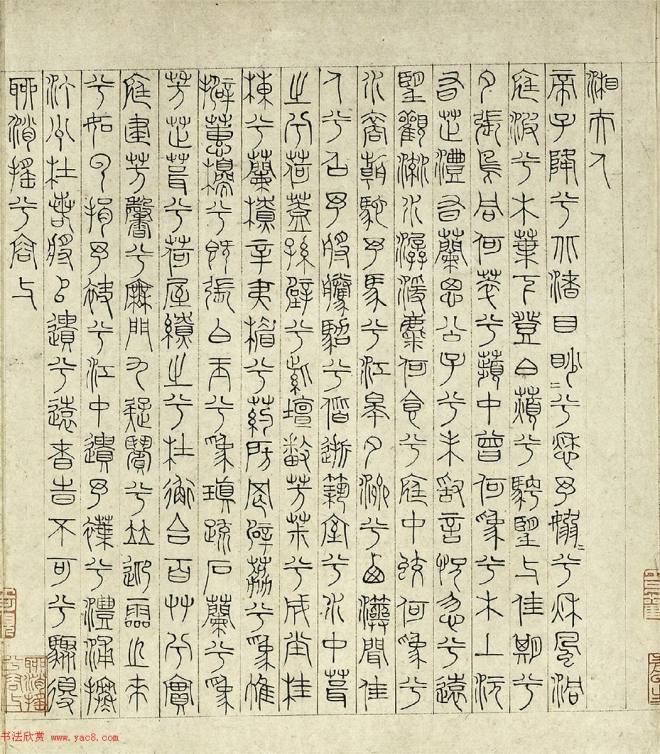 湘夫人
帝子降兮北渚目眇=兮愁予嫋=兮秋風洞
庭波兮木葉下登白薠兮騁望與佳期兮
夕張鳥何萃兮蘋中曾何為兮木上沅
有芷澧有蘭思公子兮未敢言怳忽兮遠
望觀流水潺湲麋何食兮庭中蛟何為兮
水裔朝馳予馬兮江皋夕濟兮西澨聞佳
人兮召予將騰駕兮偕逝築室兮水中葺
之兮荷蓋蓀壁兮紫壇播芳茮兮成堂桂
棟兮蘭橑辛夷楣兮葯房罔薜荔兮為帷
擗蕙櫋兮既張白玉兮為瑱疏石蘭兮為
芳芷葺兮荷屋繚之兮杜衡合百草兮實
庭建芳馨兮廡門九疑繽兮並迎靈之來
兮如雲捐予袂兮江中遺予褋兮澧浦搴
汀洲杜若將以遺兮遠者時不可兮驟得
聊逍搖兮容與
书法欣赏 www.yac8.com